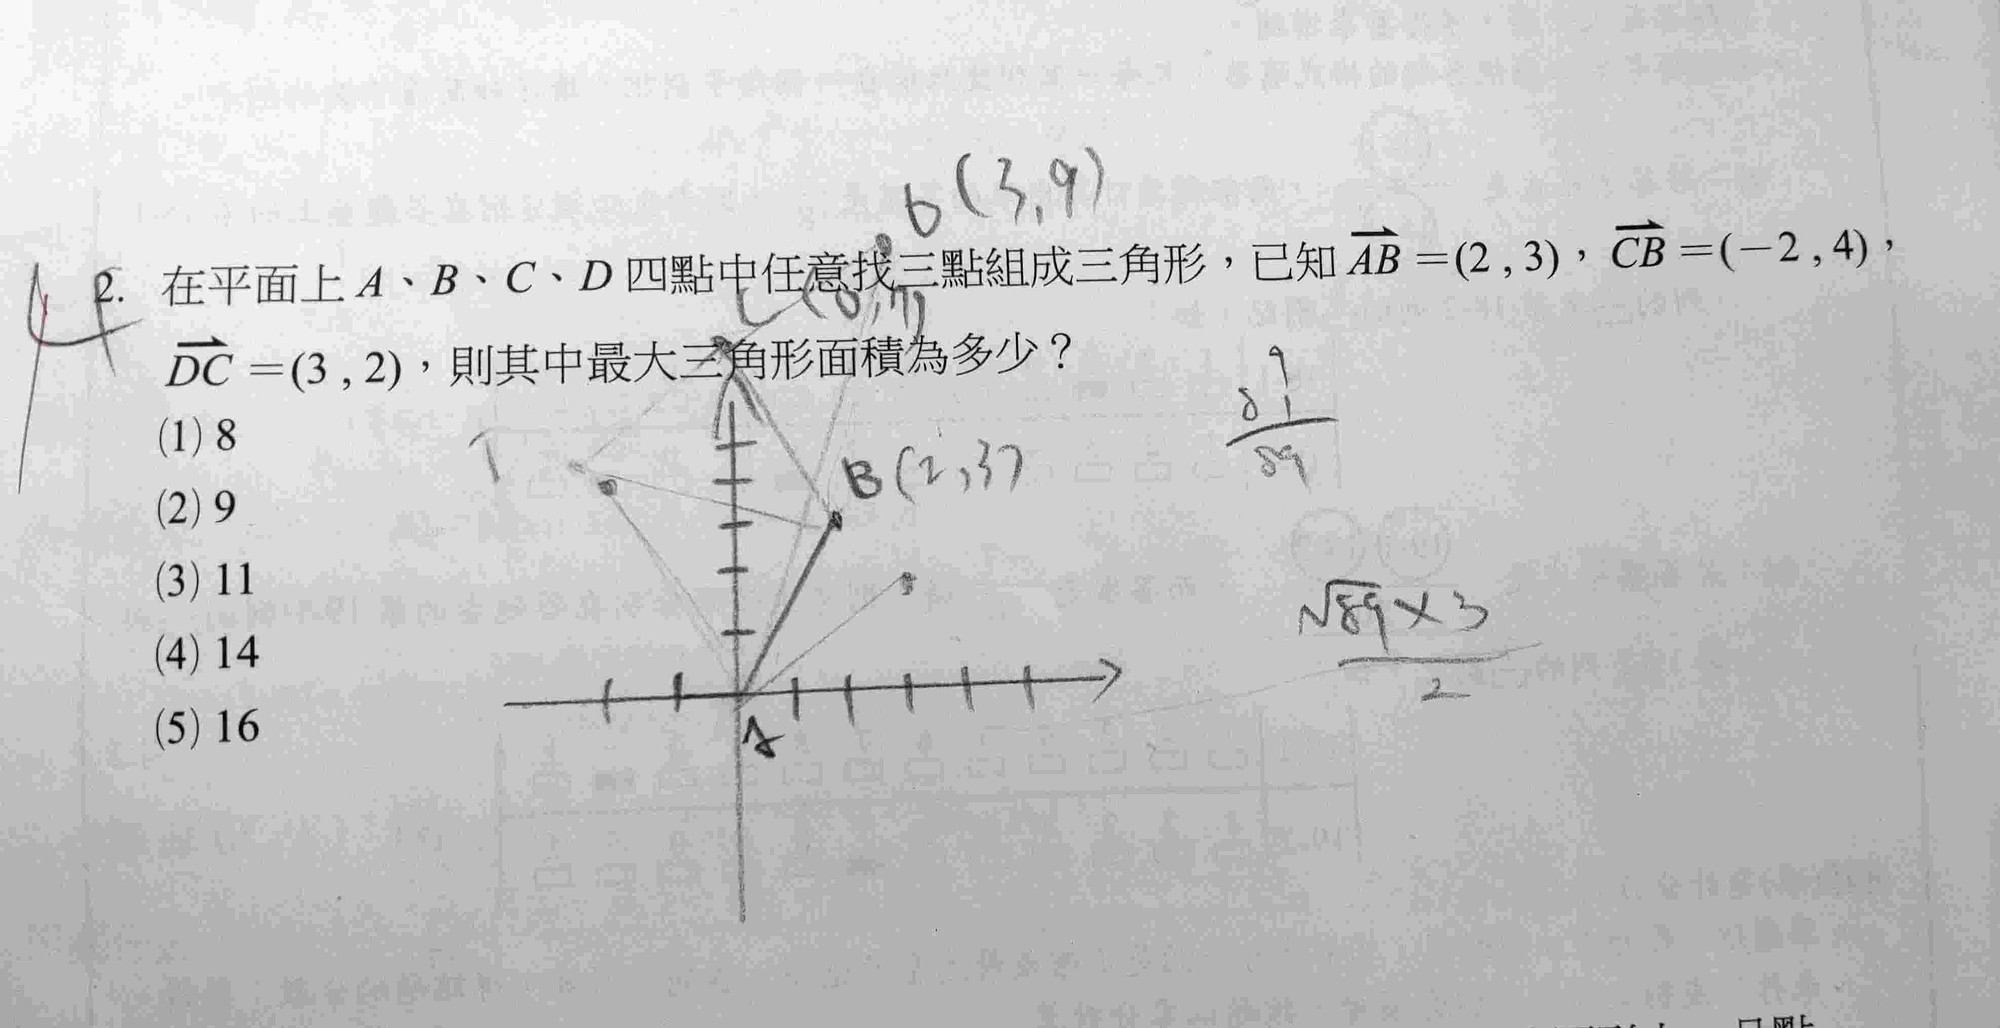 b (3,9)
2. 在平面上 A、B、C、D 四點中任意找三點組成三角形，已知 AB =(2 , 3)，CB =(−2 , 4)，
C (0,7)
DC =(3 , 2)，則其中最大三角形面積為多少？
(1) 8
(2) 9
(3) 11
(4) 14
(5) 16
B (2,3)
A
89
√89 × 3
2